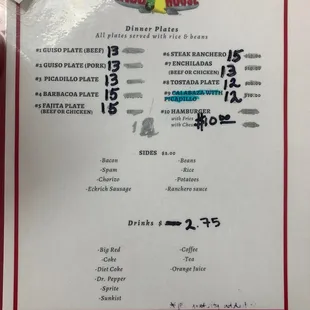 HOUSE
Dinner Plates
All plates served with rice & beans
#1 GUISO PLATE (BEEF) 13
#2 GUISO PLATE (PORK) 13
#3 PICADILLO PLATE 13
#4 BARBACOA PLATE 15
#5 FAJITA PLATE 15
(BEEF OR CHICKEN)
#6 STEAK RANCHERO 15
#7 ENCHILADAS 13
(BEEF OR CHICKEN)
#8 TOSTADA PLATE 12
#9 CALABAZA WITH 12
PICADILLO
#10 HAMBURGER
with Fries $10.00
SIDES $2.00
-Bacon
-Spam
-Chorizo
-Eckrich Sausage
-Beans
-Rice
-Potatoes
-Ranchero sauce
Drinks $ 2.75
-Big Red
-Coke
-Diet Coke
-Dr. Pepper
-Sprite
-Sunkist
-Coffee
-Tea
-Orange Juice